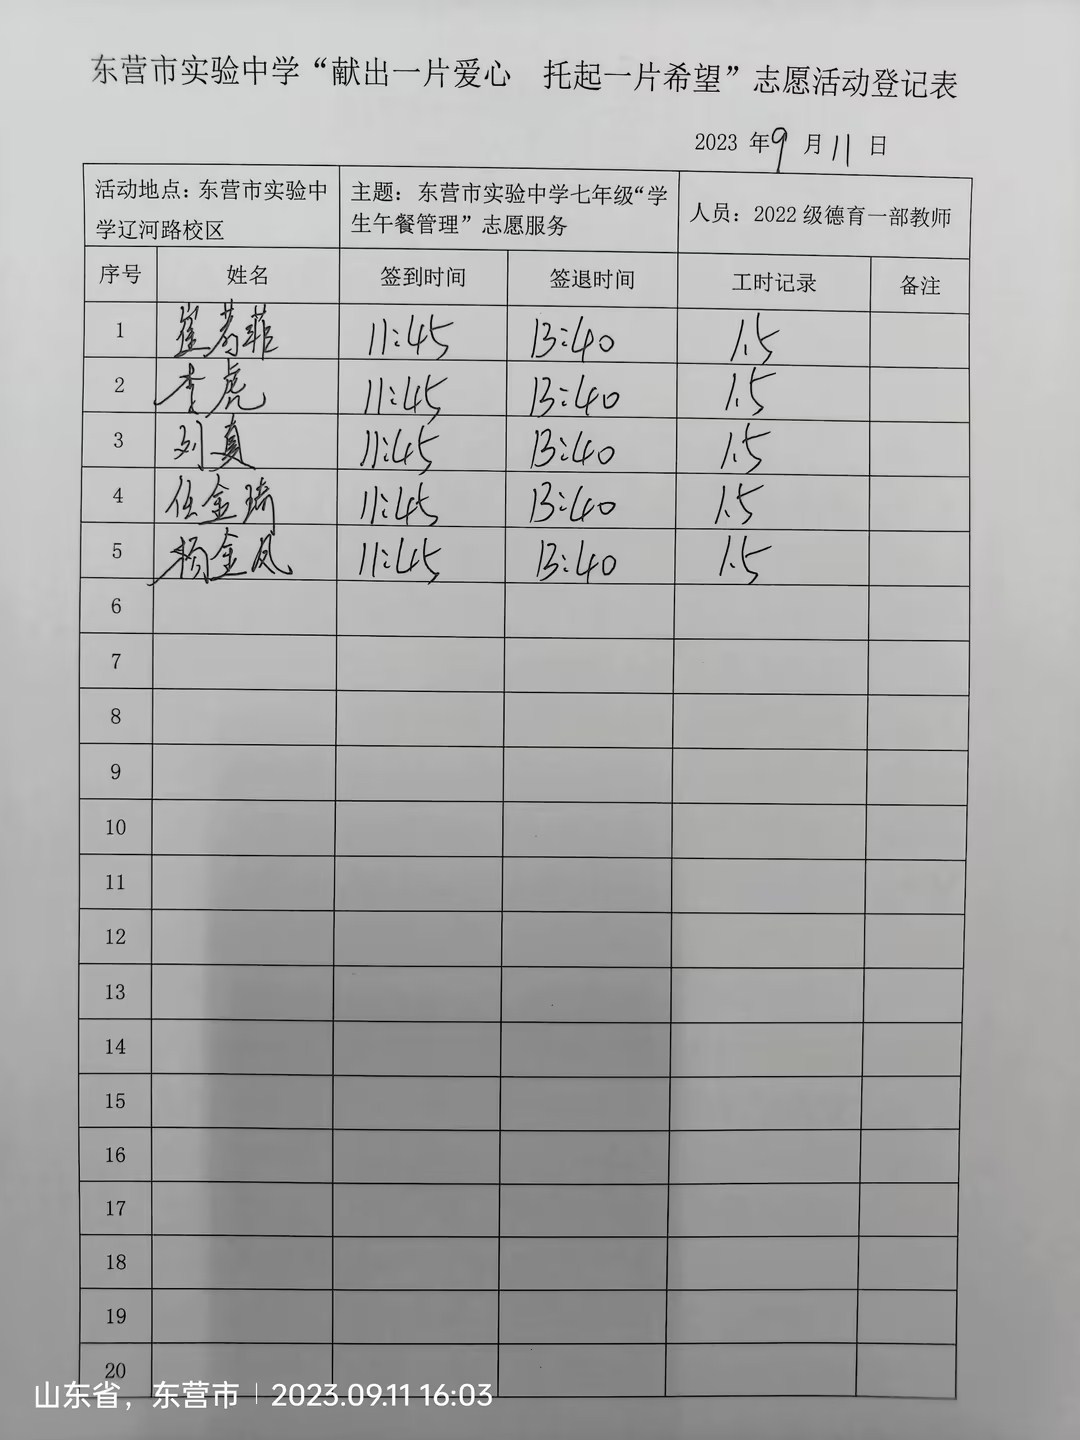 东营市实验中学“献出一片爱心 托起一片希望”志愿活动登记表
2023 年 9 月 11 日
活动地点：东营市实验中学辽河路校区 主题：东营市实验中学七年级“学生午餐管理”志愿服务 人员：2022 级德育一部教师
序号 姓名 签到时间 签退时间 工时记录 备注
1 11:45 13:40 1.5
2 李虎 11:45 13:40 1.5
3 刘真 11:45 13:40 1.5
4 任金琦 11:45 13:40 1.5
5 杨金凤 11:45 13:40 1.5
6
7
8
9
10
11
12
13
14
15
16
17
18
19
20
山东省，东营市 | 2023.09.11 16:03